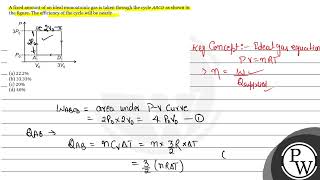 A fixed amount of an ideal monoatomic gas is taken through the cycle ABCD as shown in
the figure. The efficiency of the cycle will be nearly
P
3P₀
P₀
2P₀
2V₀
A
V₀
3V₀
V
(a) 22.2%
(b) 33.33%
(c) 20%
(d) 10%
Key Concept:- Ideal gas equation
PV = nRT
η = W / Qsupplied
WABCD = area under P-V Curve
= 2P₀ × 2V₀ = 4 P₀V₀ — ①
QAB →
QAB = nCvΔT = n × 3/2 R × ΔT
= 3/2 (nRΔT)
PW